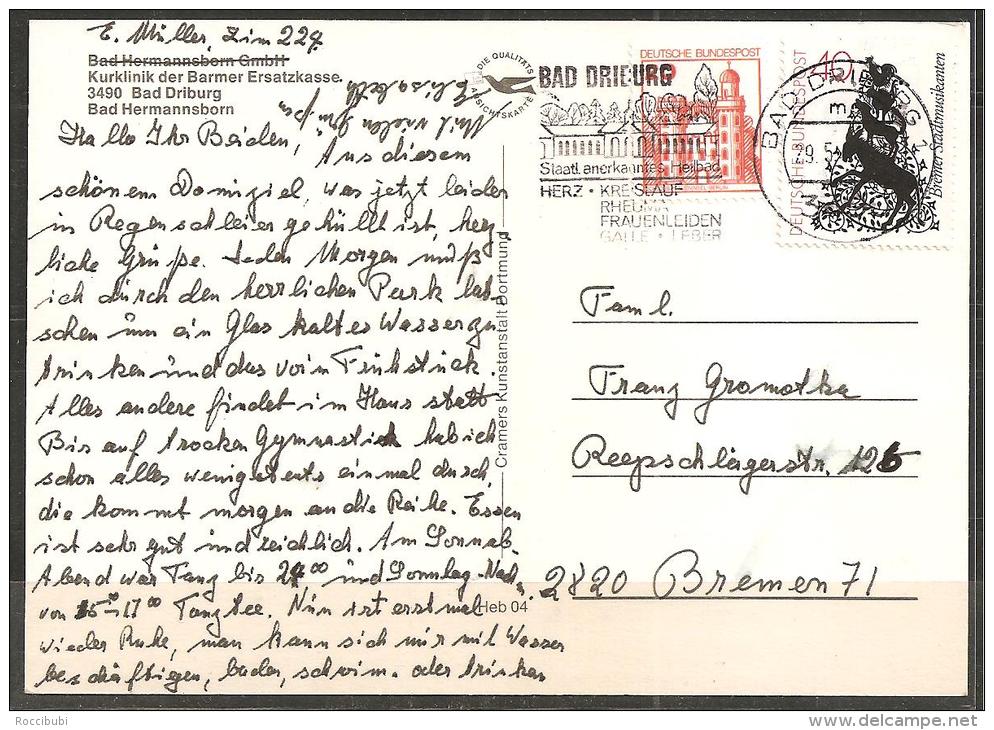 E. Müller, Zim 229
Bad Hermannsborn GmbH
Kurklinik der Barmer Ersatzkasse
3490 Bad Driburg
Bad Hermannsborn
Hallo Ihr Beiden, Aus diesem
schönem Domiziel, was jetzt leider
in Regenschleier gehüllt ist, herz
liche Grüße. Jeden Morgen muß
ich durch den herrlichen Park lat-
schen um ein Glas kaltes Wasser zu
trinken und das vor'm Frühstück.
Alles andere findet im Haus statt
Bis auf trocken Gymnastick hab ich
schon alles wenigstens einmal durch,
die kommt morgen an die Reihe. Essen
ist sehr gut und reichlich. Am Sonnab.
Abend war Tanz bis 24⁰⁰ und Sonntag-Nach.
von 15³⁰-17⁰⁰ Tanztee. Nun ist erstmal
wieder Ruhe, man kann sich nur mit Wasser
beschäftigen, baden, schwim. oder trinken
Mit vielen
Elisabeth
DIE QUALITÄTS
ANSICHTSKARTE
Cramers Kunstanstalt Dortmund
Heb 04
BAD DRIBURG
Staatl. anerkanntes Heilbad
HERZ • KREISLAUF
RHEUMA
FRAUENLEIDEN
GALLE • LEBER
DEUTSCHE BUNDESPOST
BAD DRIBURG 1
DEUTSCHE BUNDESPOST
40
Bremer Stadtmusikanten
Faml.
Franz Gromotka
Reepschlägerstr. 126
2820 Bremen 71
Roccibubi
www.delcampe.net